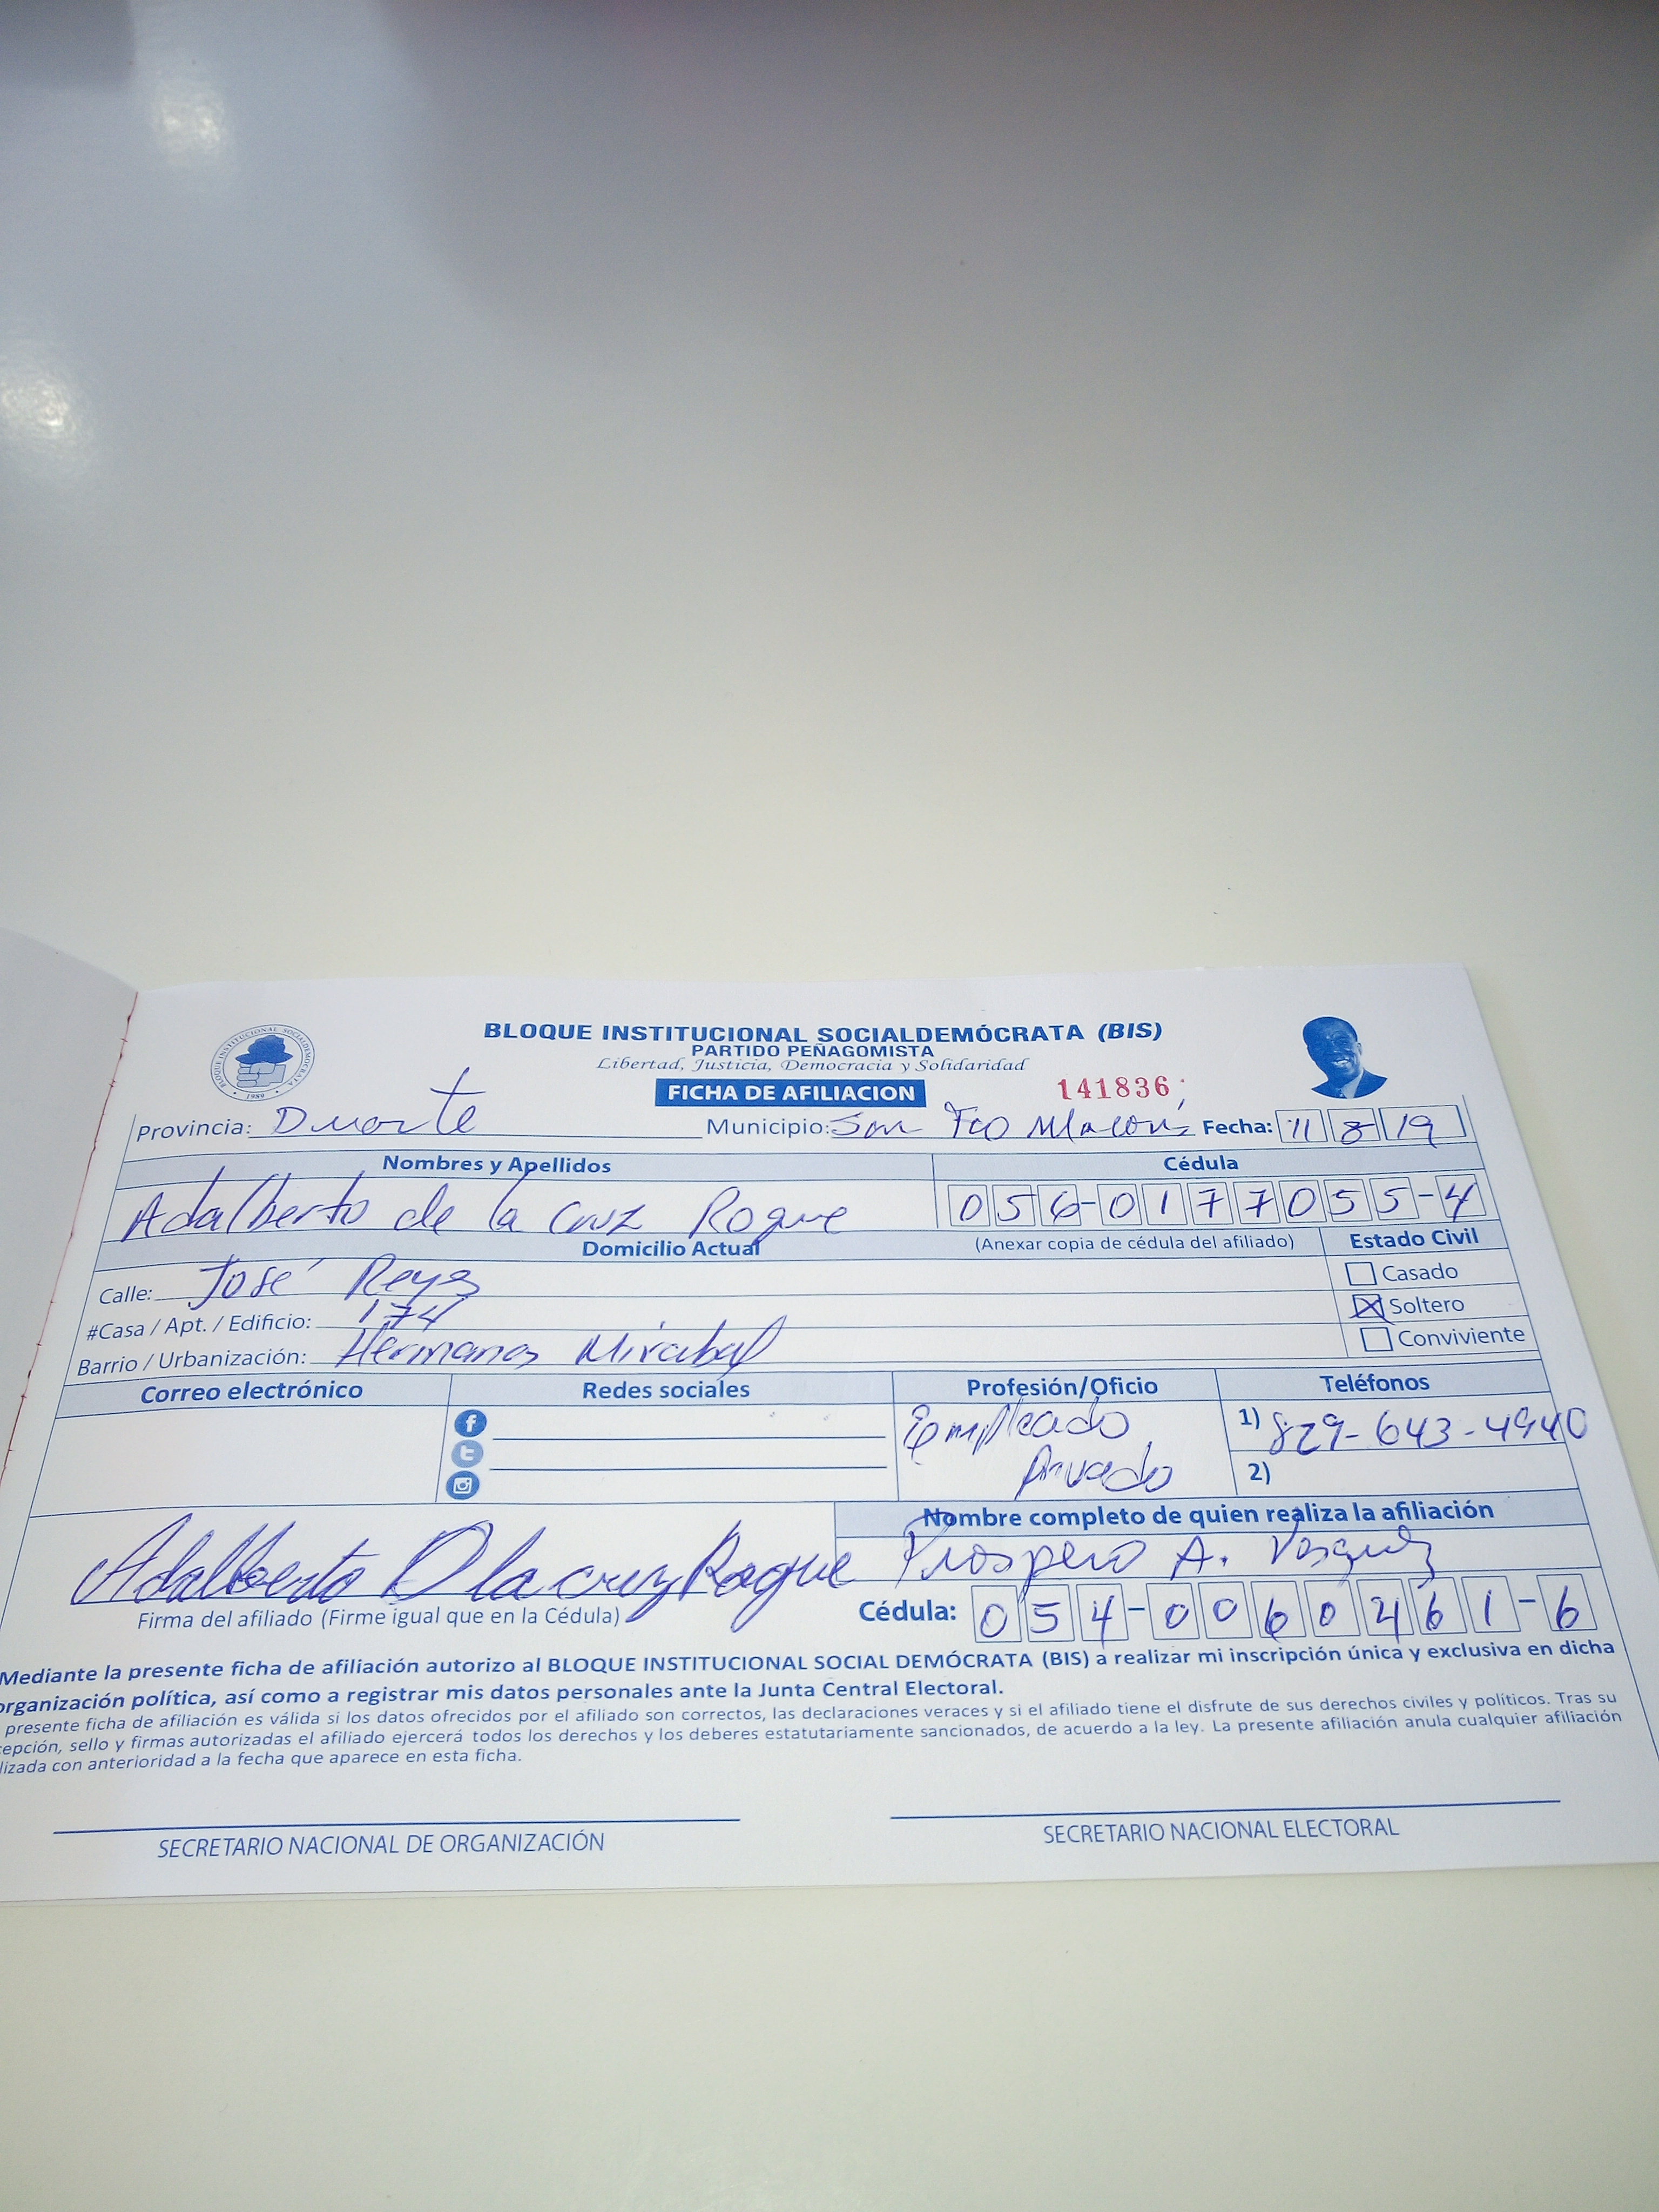 BLOQUE INSTITUCIONAL SOCIALDEMÓCRATA (BIS)
PARTIDO PEÑAGOMISTA
Libertad, Justicia, Democracia y Solidaridad
BLOQUE INSTITUCIONAL SOCIALDEMOCRATA
1989
FICHA DE AFILIACION
141836
Provincia: Duarte Municipio: San Fco Macorís Fecha: 11 8 19
Nombres y Apellidos Cédula
Adalberto de la Cruz Roque 056-0177055-4
Domicilio Actual (Anexar copia de cédula del afiliado) Estado Civil
Calle: José Reyes Casado
#Casa / Apt. / Edificio: 174 X Soltero
Barrio / Urbanización: Hermanas Mirabal Conviviente
Correo electrónico Redes sociales Profesión/Oficio Teléfonos
f Empleado 1) 829-643-4940
t Privado 2)
Nombre completo de quien realiza la afiliación
Adalberto D la cruz Roque Prospero A. Vasquez
Firma del afiliado (Firme igual que en la Cédula) Cédula: 054-0060461-6
Mediante la presente ficha de afiliación autorizo al BLOQUE INSTITUCIONAL SOCIAL DEMÓCRATA (BIS) a realizar mi inscripción única y exclusiva en dicha
organización política, así como a registrar mis datos personales ante la Junta Central Electoral.
presente ficha de afiliación es válida si los datos ofrecidos por el afiliado son correctos, las declaraciones veraces y si el afiliado tiene el disfrute de sus derechos civiles y políticos. Tras su
epción, sello y firmas autorizadas el afiliado ejercerá todos los derechos y los deberes estatutariamente sancionados, de acuerdo a la ley. La presente afiliación anula cualquier afiliación
lizada con anterioridad a la fecha que aparece en esta ficha.
SECRETARIO NACIONAL DE ORGANIZACIÓN SECRETARIO NACIONAL ELECTORAL